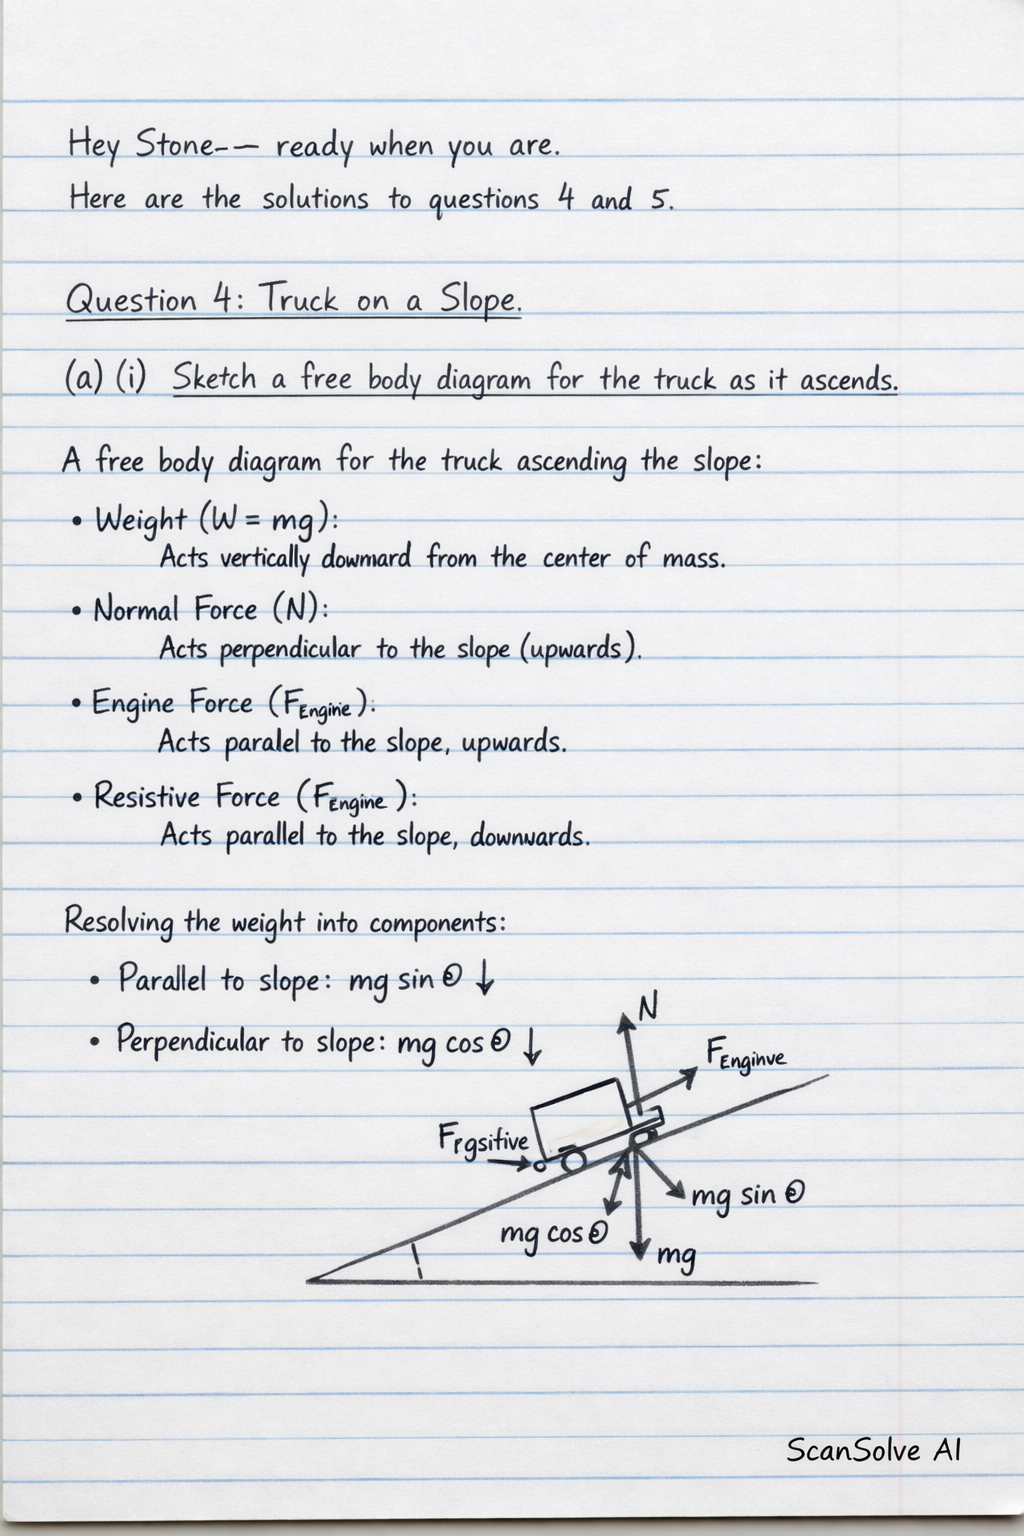 Hey Stone-— ready when you are.
Here are the solutions to questions 4 and 5.
Question 4: Truck on a Slope.
(a) (i) Sketch a free body diagram for the truck as it ascends.
A free body diagram for the truck ascending the slope:
• Weight (W = mg):
Acts vertically dowmard from the center of mass.
• Normal Force (N):
Acts perpendicular to the slope (upwards).
• Engine Force (FEngine):
Acts paralel to the slope, upwards.
• Resistive Force (FEngine):
Acts parallel to the slope, downwards.
Resolving the weight into components:
• Parallel to slope: mg sin Θ ↓
• Perpendicular to slope: mg cos Θ ↓
N
FEnginve
Frgsitive
mg sin Θ
mg cos Θ
mg
ScanSolve AI